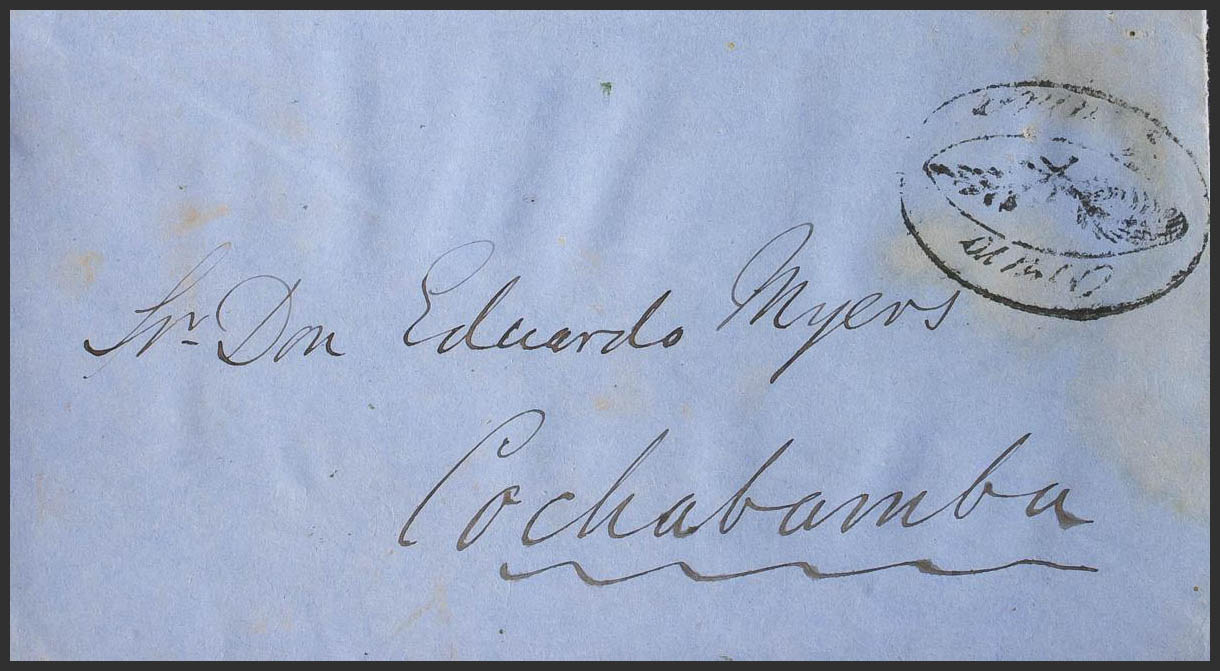 Snr. Don Eduardo Myers
Cochabamba